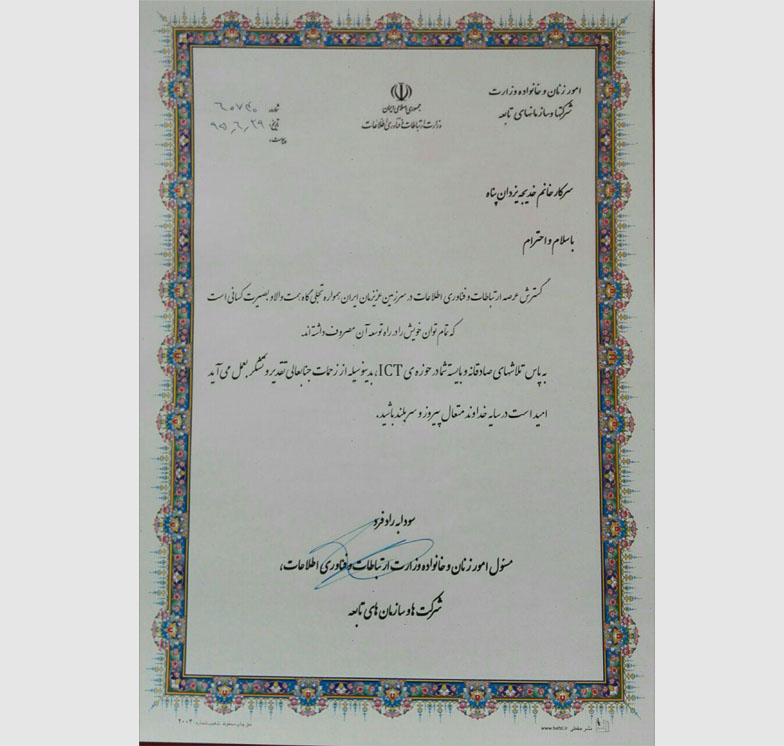 امور زنان و خانواده وزارت
شرکتها و سازمانهای تابعه
جمهوری اسلامی ایران
وزارت ارتباطات و فناوری اطلاعات
شماره: ۶۰۷۴۰
تاریخ: ۹۵,۶,۲۹
پیوست:
سرکار خانم خدیجه یزدان پناه
با سلام و احترام
گسترش عرصه ارتباطات و فناوری اطلاعات در سرزمین عزیزمان ایران همواره تجلی گاه همت والا و بصیرت کسانی است
که تمام توان خویش را در راه توسعه آن مصروف داشته اند.
به پاس تلاشهای صادقانه و بایسته شما در حوزه ی ICT، بدینوسیله از زحمات جنابعالی تقدیر و تشکر بعمل می آید
امید است در سایه خداوند متعال پیروز و سربلند باشید.
سودابه رادفرد
مسئول امور زنان و خانواده وزارت ارتباطات و فناوری اطلاعات،
شرکت ها و سازمان های تابعه
حق چاپ محفوظ شماره ۲۰۰۳
نشر حفظی www.hefzi.ir